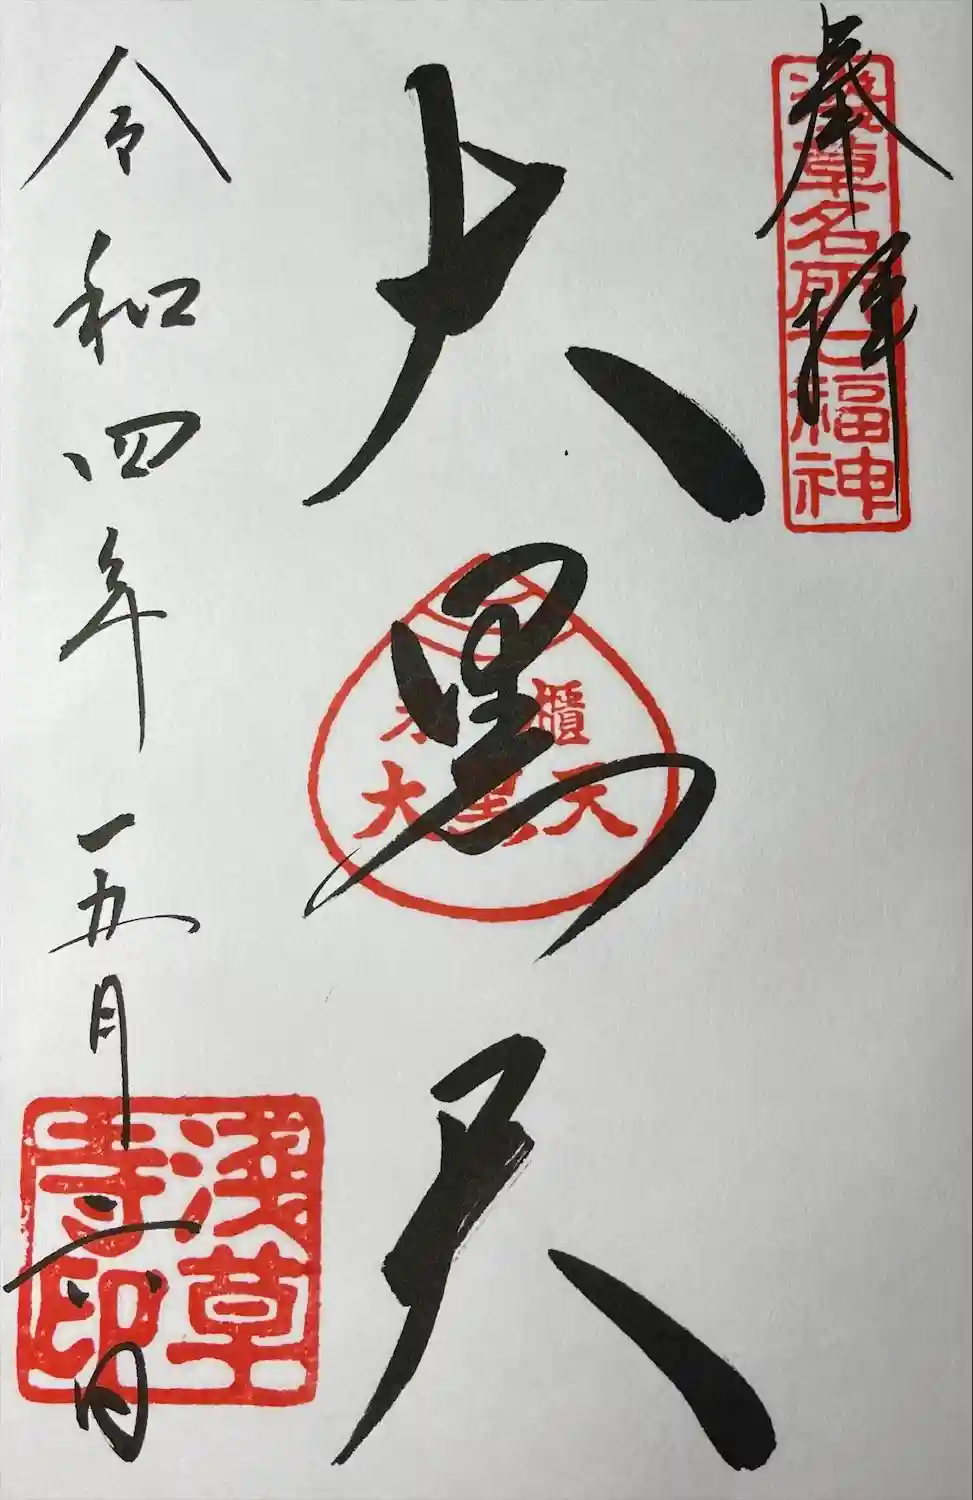 奉拝
淺草名所七福神
大黒天
櫃
大黒天
令和四年五月六日
淺草
寺印